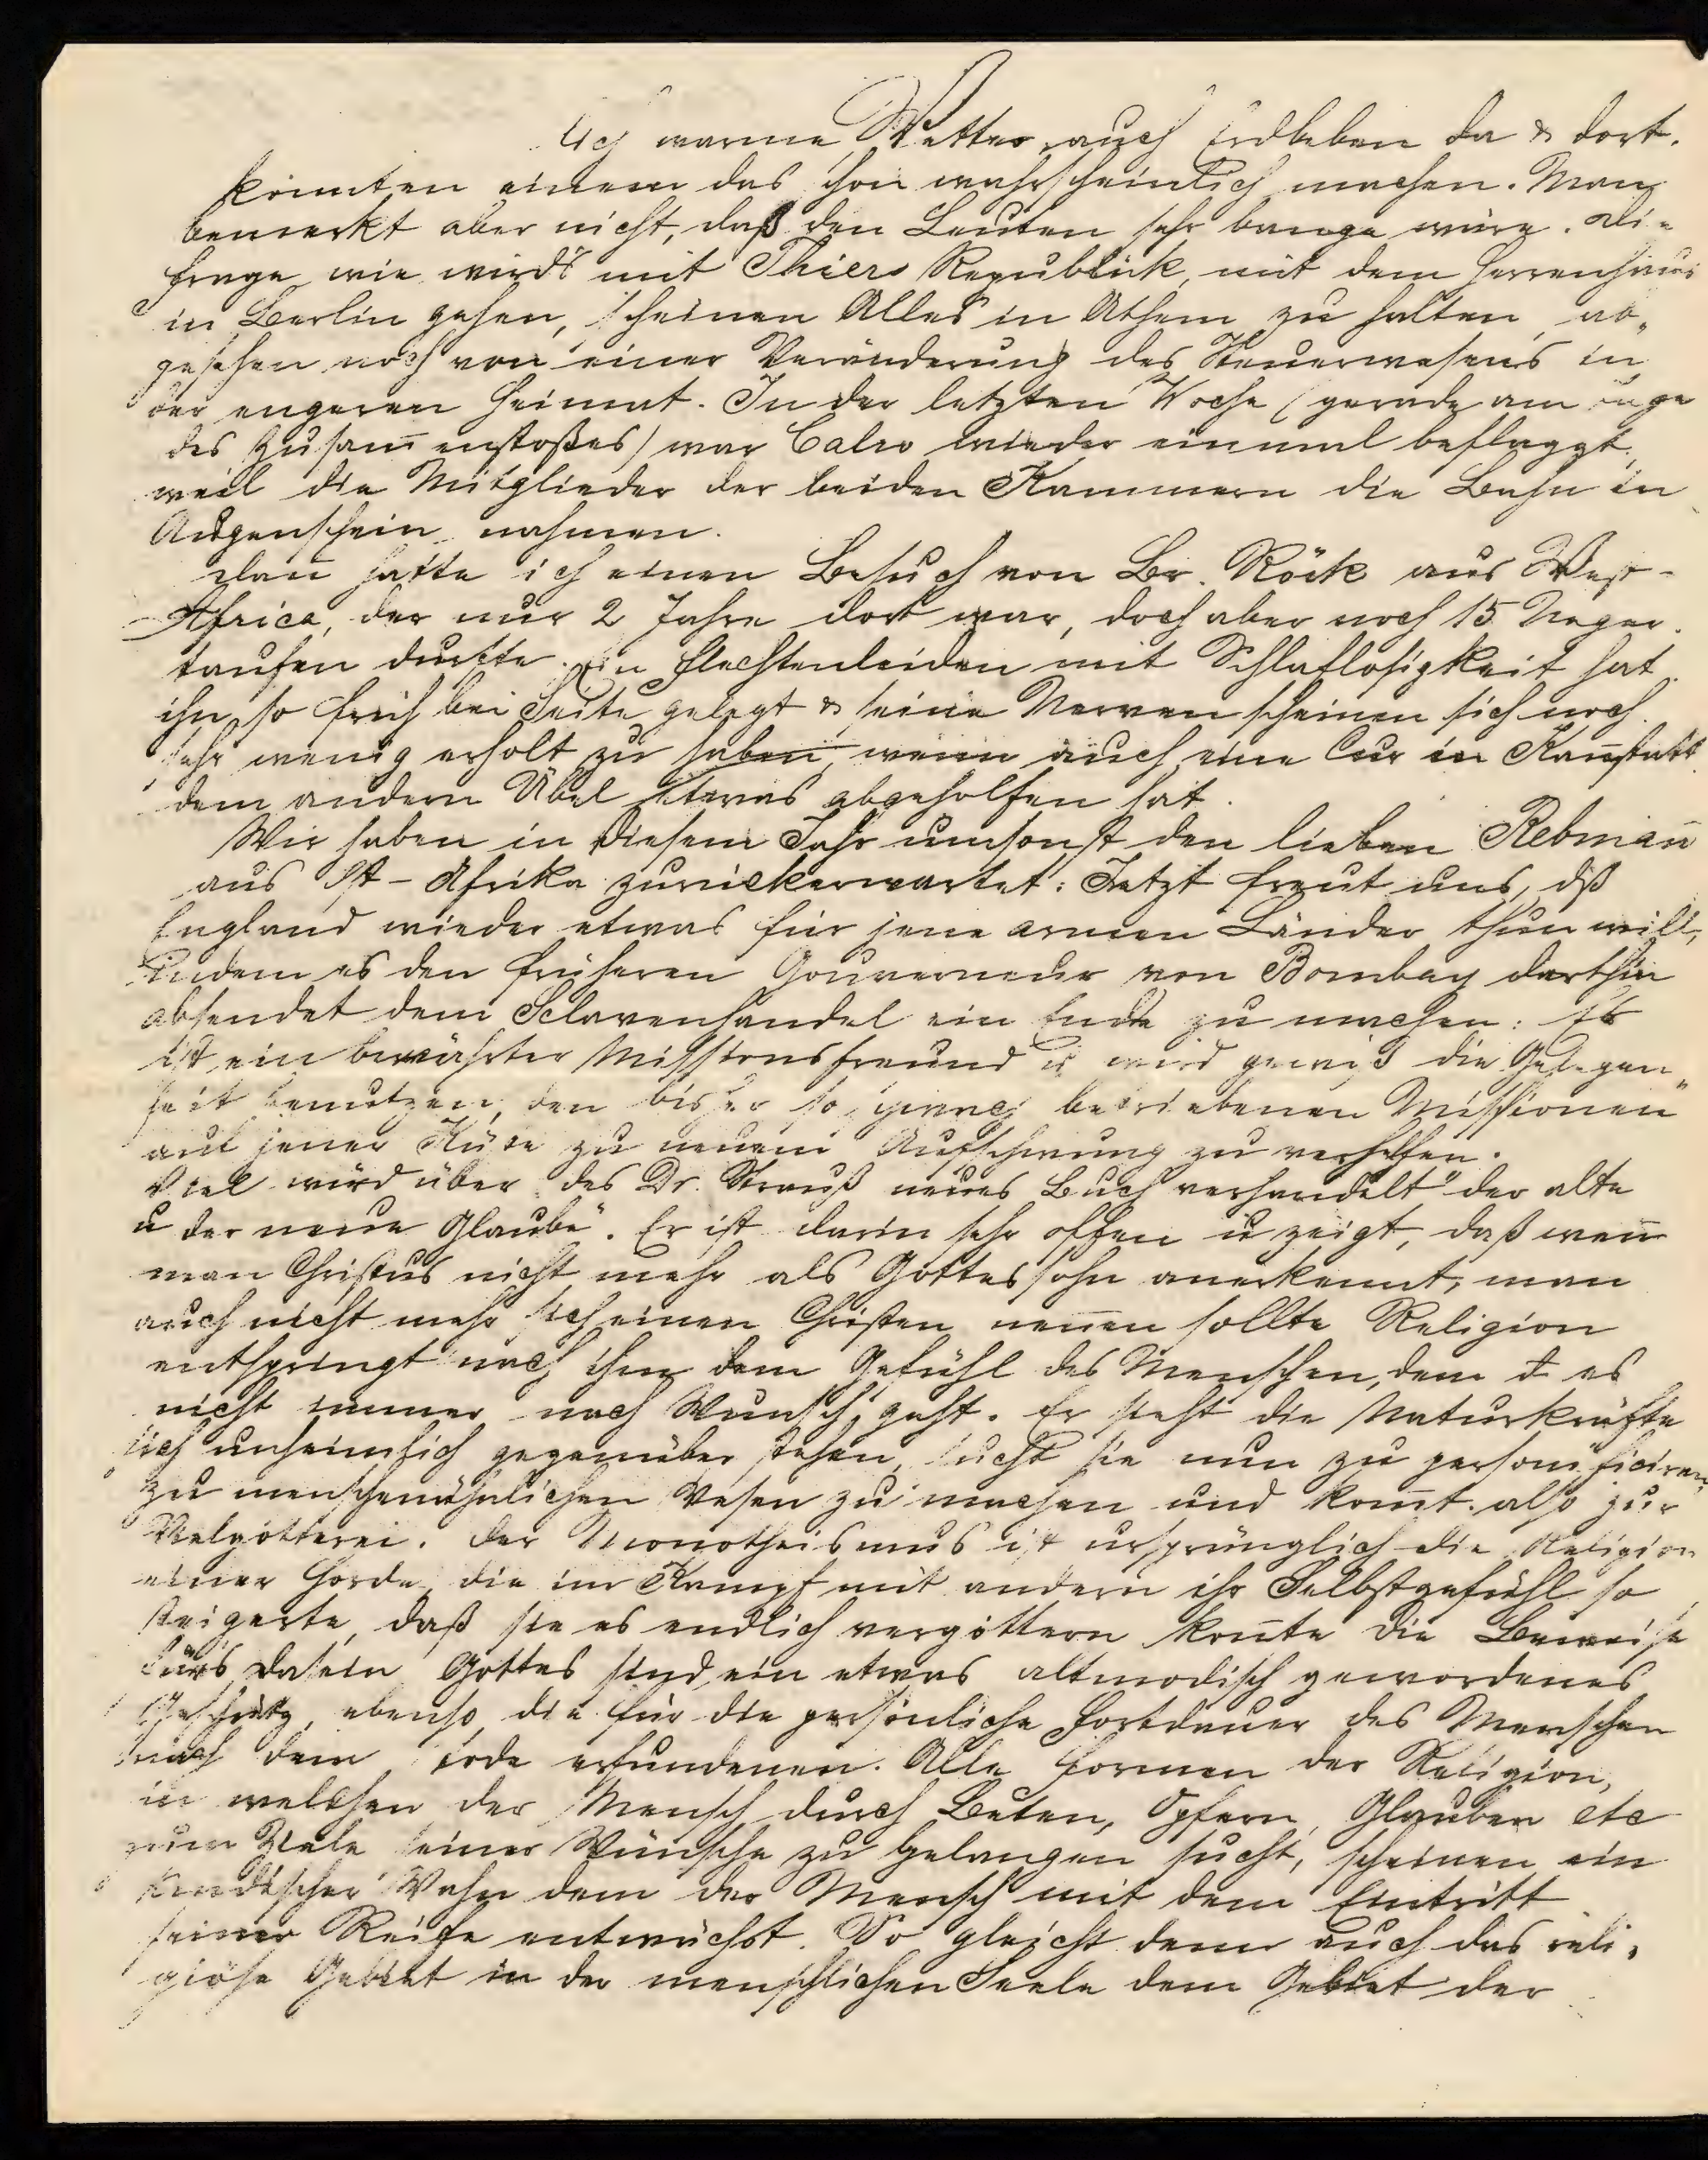 lich warme Wetter, auch Erdbeben da & dort.
könnten einem das schon wahrscheinlich machen. Man
bemerkt aber nicht, daß den Leuten sehr bange wäre. Die
Frage wie wirds mit Thiers Republik, mit dem Herrenhaus
in Berlin gehen, scheinen Alles in Athem zu halten, ab„
gesehen noch von einer Veränderung des Steuerwesens in
der engeren Heimat. In der letzten Woche (gerade am Tage
des Zusam̄enstoßes) war Calw wieder einmal beflaggt,
weil die Mitglieder der beiden Kammern die Bahn in
Augenschein nahmen.
Dan̄ hatte ich einen Besuch von Br. Röck aus West-
Africa, der nur 2 Jahre dort war, doch aber noch 15 Neger
taufen durfte. Ein Flechtenleiden mit Schlaflosigkeit hat
ihn so früh bei Seite gelegt & seine Nerven scheinen sich noch
sehr wenig erholt zu haben, wenn auch eine Cur in Kan̄statt
dem andern Übel etwas abgeholfen hat.
Wir haben in diesem Jahr umsonst den lieben Rebman̄
aus Ost-Afrika zurückerwartet: Jetzt freut uns, dß
England wieder etwas für jene armen Länder thun will,
indem es den früheren Gouverneur von Bombay dorthin
absendet dem Sclavenhandel ein Ende zu machen: Er
ist ein bewährter Missionsfreund u wird gewiß die Gelegen„
heit benutzen, den bisher so schwach betriebenen Missionen
auf jener Küste zu neuem Aufschwung zu verhelfen.
Viel wird über des Dr. Strauß neues Buch verhandelt "der alte
u der neue Glaube". Er ist darin sehr offen u zeigt, daß wen̄
man Christus nicht mehr als Gottessohn anerkennt, man
auch nicht mehr sich einen Christen nen̄en sollte Religion
entspringt nach ihm dem Gefühl des Menschen, dem es
nicht immer nach Wunsch geht. Er sieht die Naturkräfte
sich unheimlich gegenüber stehen, sucht sie nun zu personificiren,
zu menschenähnlichen Wesen zu machen und kom̄t also zur
Vielgötterei. Der Monotheismus ist ursprünglich die Religion
einer Horde, die im Kampf mit andern ihr Selbstgefühl so
steigerte, daß sie es endlich vergöttern kon̄te Die Beweise
fürs Dasein Gottes sind ein etwas altmodisch gewordenes
Geschütz, ebenso die für die persönliche Fortdauer des Menschen
nach dem Tode erfundenen. Alle Formen der Religion,
in welchen der Mensch durch Beten, Opfern, Glauben etc
zum Ziele seiner Wünsche zu gelangen sucht, scheinen ein
kindischer Wahn dem der Mensch mit dem Eintritt
seiner Reife entwächst. So gleicht denn auch das reli„
giöse Gebiet in der menschlichen Seele dem Gebiet der